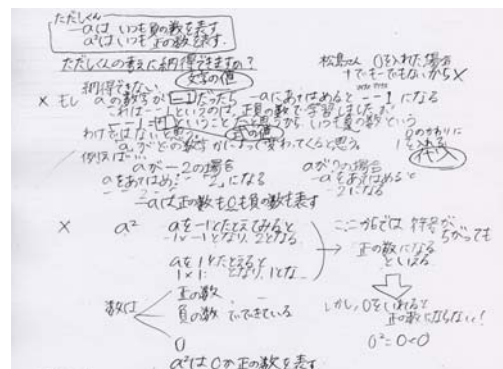 ただしくん
-aは いつも負の数を表す
a²は いつも正の数を表す.
ただしくんの考えに納得できますか?
文字の値
松島さん 0を入れた場合
+でも-でもないから×
納得できない
× もし aの数字が-1だったら -aにあてはめると --1になる
これは--1というのは、正負の数で学習しました
--1=1ということだと思うから、いつも負の数という
わけではないと思う。 式の値
aがどの数字かによって変わってくると思う。
0のかわりに
1を入れる
代入
例えば…
aが-2の場合
aをあてはめ
になる
aが の場合
-aをあてはめると
-2になる
-aは正の数も0も負の数を表す
× a² aを-1とたとえてみると
-1×-1となり、2となる
aを1とたとえると
1×1 となり、1とな
ここからでは 符号が
ちがっても
正の数になる
といえる
しかし、0をいれると
正の数にならない!
0²=0<0
数は
正の数
負の数 でできている
0
a²は0か正の数を表す